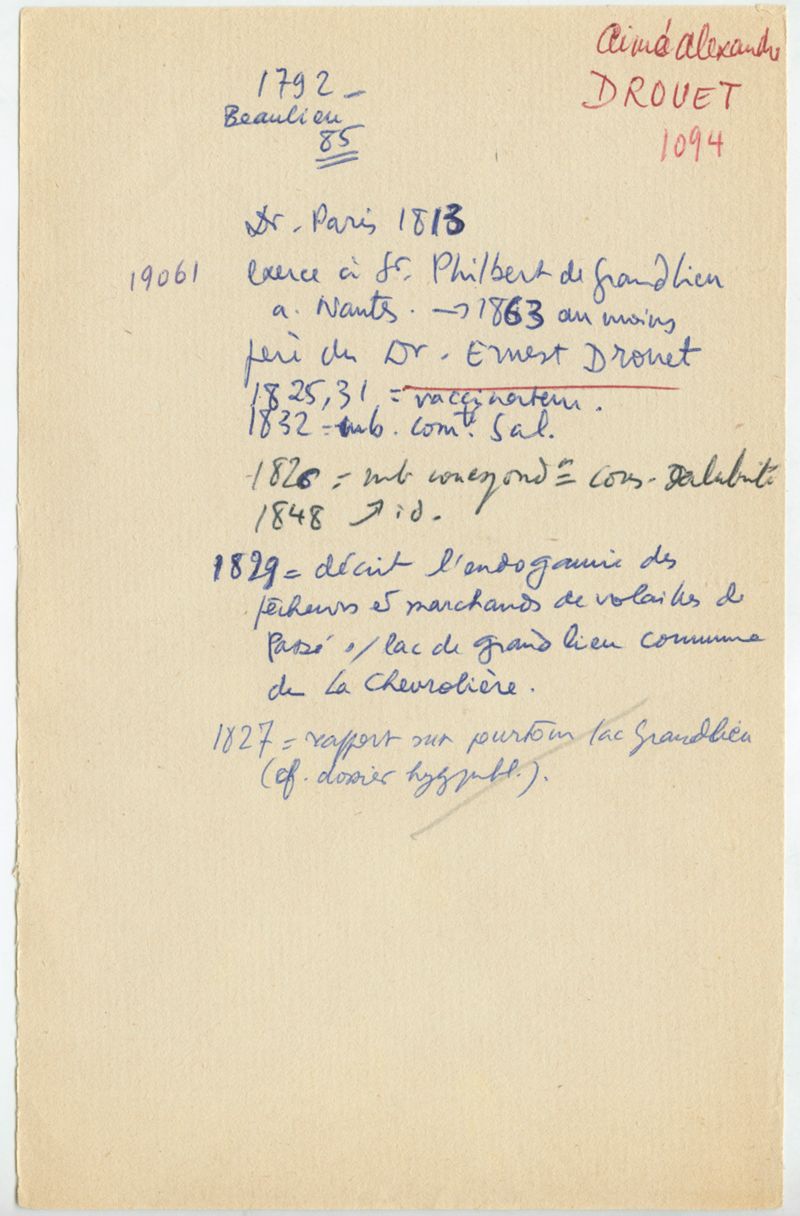 Aimé Alexandre
DROUET
1094
1792 –
Beaulieu
85
Dr. Paris 1813
19061
exerce à St. Philbert de Grandlieu
a. Nantes. → 1863 au moins
père du Dr. Ernest Drouet
1825, 31 = vaccinateur.
1832 = mb. comt. Sal.
1826 = mb correspondnt = cons. Salubrité
1848 ↗ id.
1829 = décrit l'endogamie des
pêcheurs et marchands de volailles de
Passé s/ lac de grand lieu commune
de La Chevrolière.
1827 = rapport sur pourtour lac Grandlieu
(cf. dossier hyg publ.).